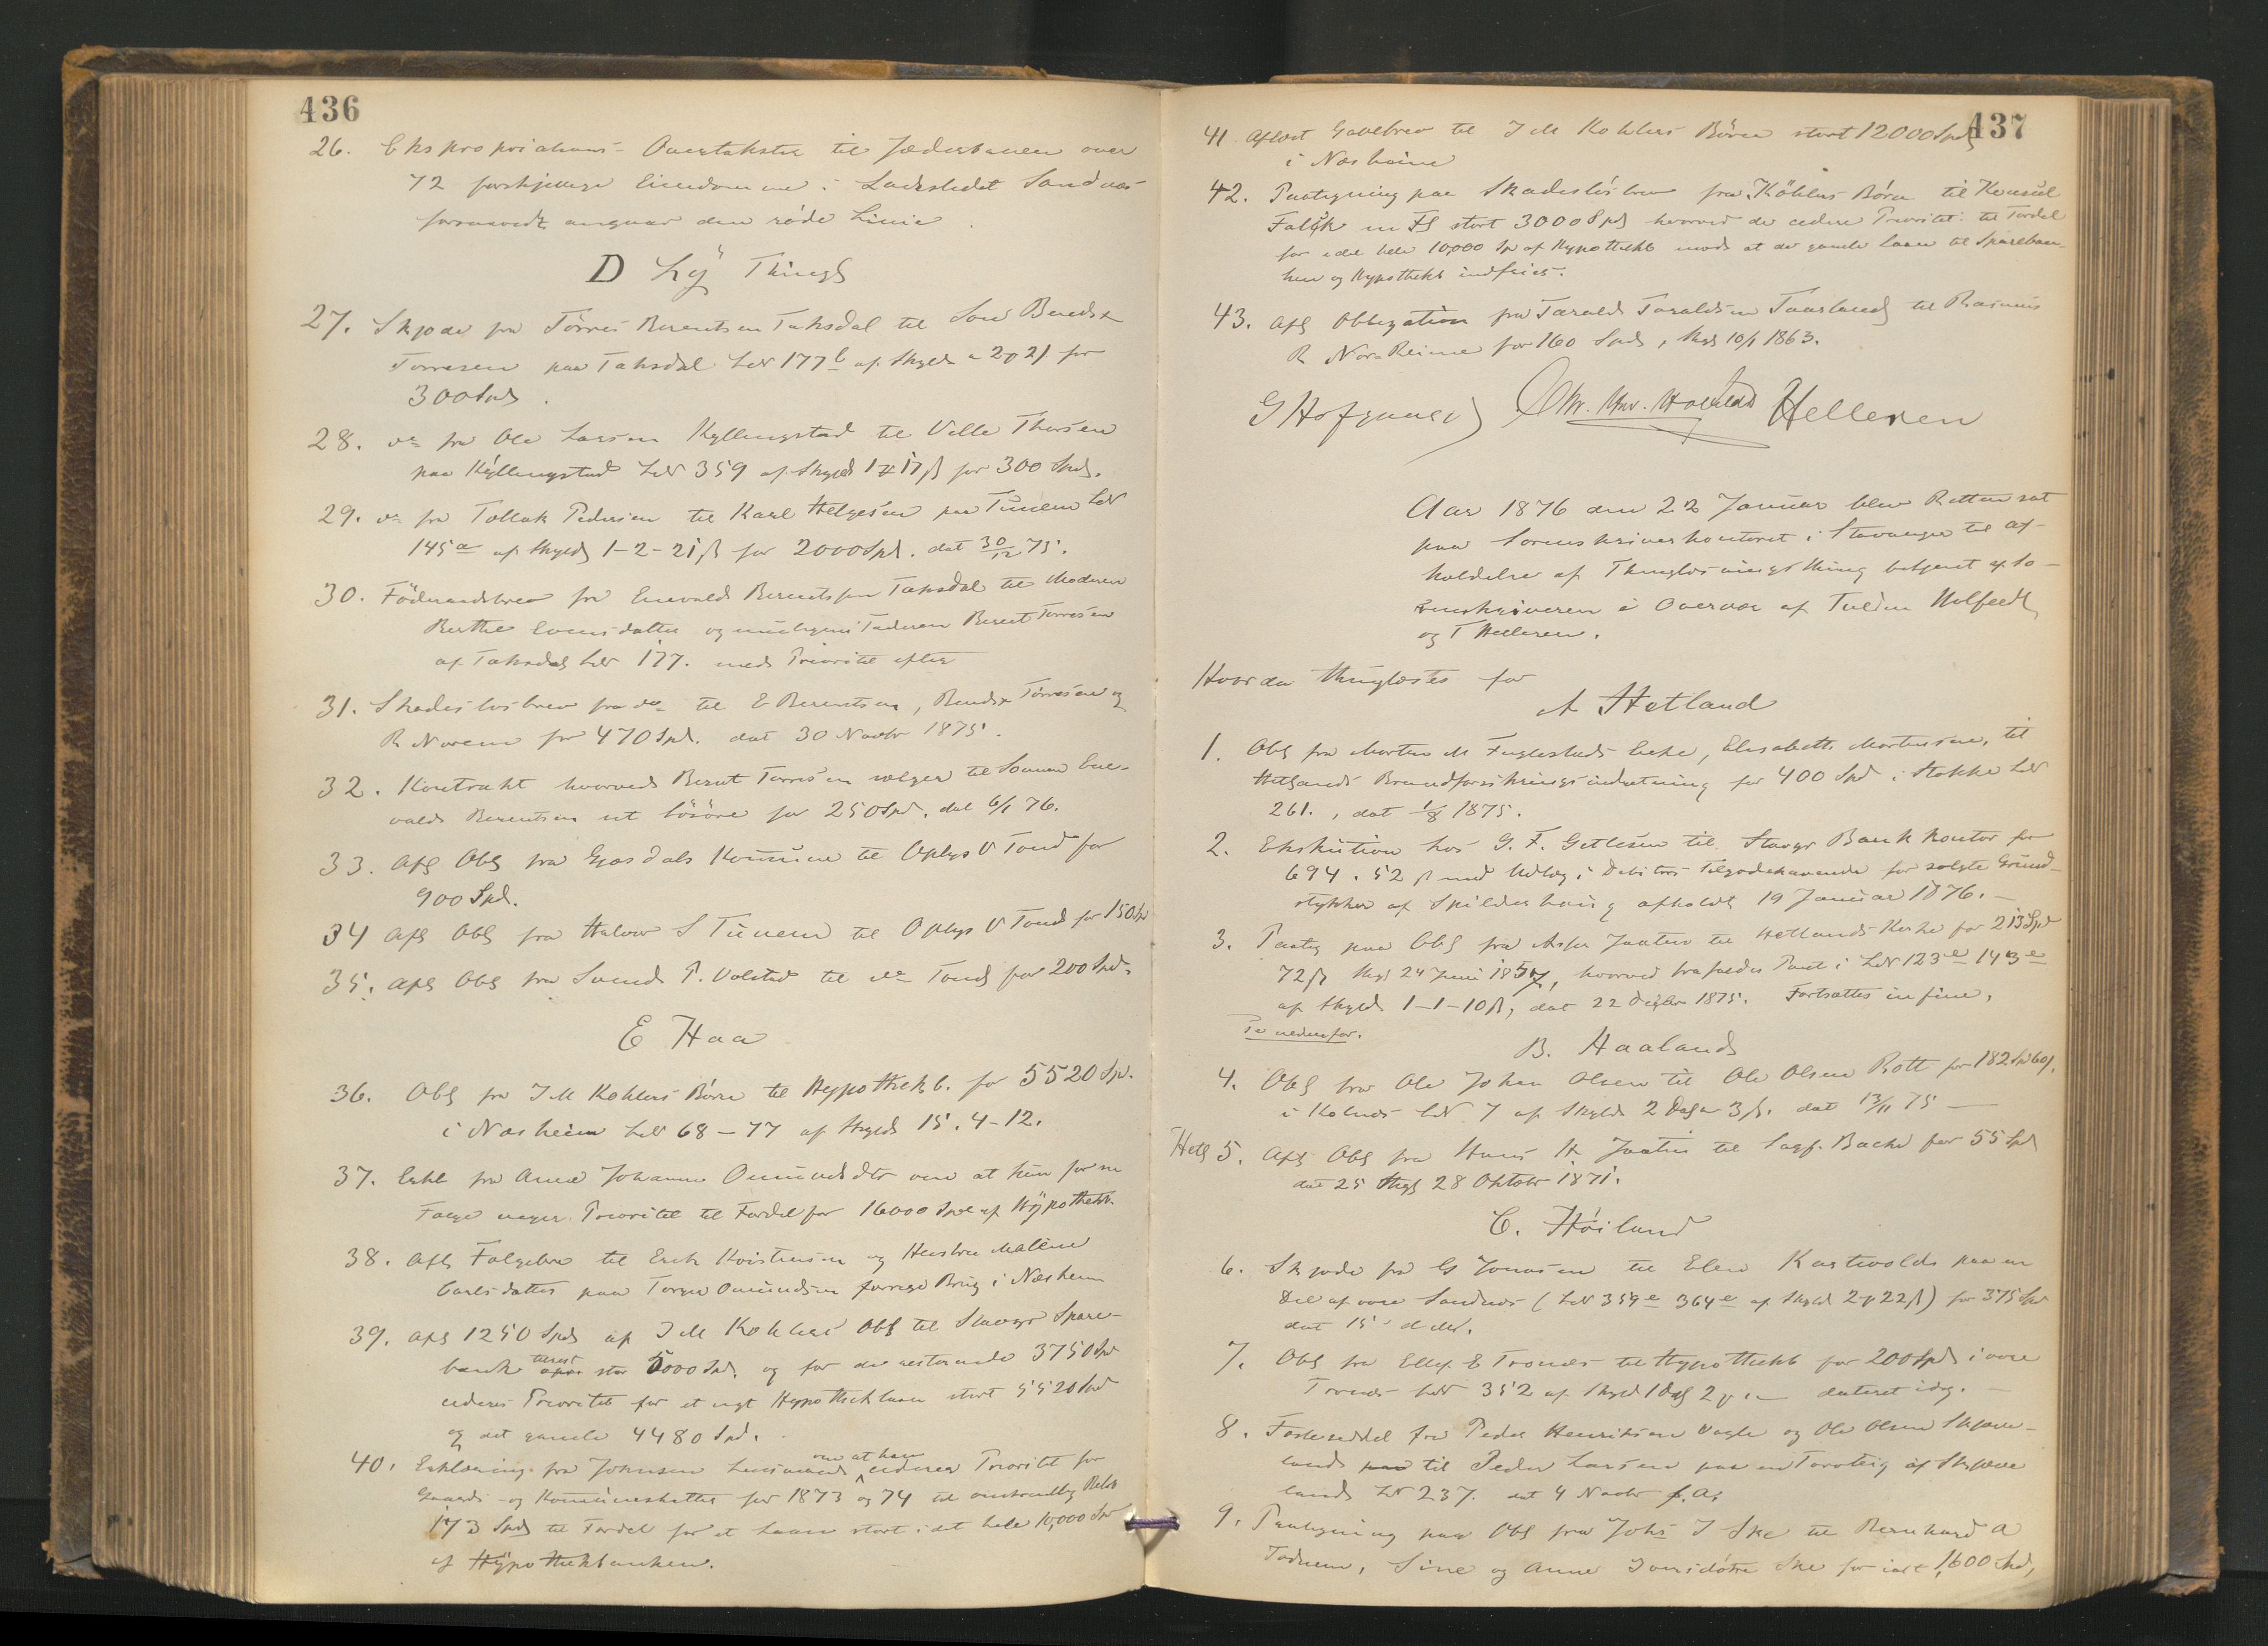 436
26. Expropriations-Overtakster til Jæderbanen over
72 forskjellige Eiendomme i Ladestedet Sandnæs
forsaavidt angaar den røde Linie.
D Lÿ Thingl
27. Skjøde fra Tørres Berentsen Taksdal til Søn Bendix
Torresen paa Taksdal LN 177b af Skyld 2 21 for
300 Spd.
28. do fra Ole Larsen Kyllingstad til Ville Thorsen
paa Kyllingstad LN 359 af Skyld 1 17 ß for 300 Spd.
29. do fra Tollak Pedersen til Karl Helgesen paa Tunem LN
145a af Skyld 1-2-21 ß for 2000 Spd. dat 30/12 75.
30. Föderaadsbrev fra Enevald Berentsen Taksdal til Moderen
Berthe Evensdatter og Faderen Berent Torresen
af Taksdal LN 177. med Prioritet efter
31. Skadesløsbrev fra do til E Berentsen, Bendix Tørresen og
R Norem for 470 Spd. dat 30 Novbr 1875.
32. Kontrakt hvorved Berent Torresen sælger til Sønnen Ene-
vald Berentsen sit Lösöre for 250 Spd. dat 6/1 76.
33. Afl Obl fra Gjesdals Kommune til Oplys V Fond for
900 Spd.
34 Afl Obl fra Halvor S Tunem til Oplys V Fond for 150 Spd
35. Afl Obl fra Svend P. Volstad til do Fond for 200 Spd.
E Haa
36. Obl fra J M Kohlers Börn til Hypothekb. for 5520 Sp.
i Nærheim LN 68-77 af Skyld 15.4-12.
37. Erkl fra Anne Johanne Omundsdtr om at hun for sin
Prioritet til Fordel for 16000 Spd af Hÿpothekb.
38. Afl Folgebrev til Erik Kristensen og Hustru Malene
Carlsdatter paa Torger Omundsen forrige Brug i Nærheim
39. Afl 1250 Spd af J M Kohlers Obl til Stavgr Spare-
bank tilrest stor 5000 Spd. og for de resterende 3750 Spd
cederes Prioritet for et nyt Hypotheklaan stort 5520 Spd
og det gamle 4480 Spd.
40. Erklæring fra Johnsen Lensmand om at han cederer Prioritet for
og Kommuneskatter for 1873 og 74 til omtrentlig Beløb
173 Spd til Fordel for et Laan stort i det hele 10,000 Spd
af Hÿpothekbanken.
437
41 Aflæst Gavebrev til J M Kohlers Börn stort 12000 Spd
i Nærheim
42. Paategning paa Skadesløsbrev fra Köhlers Börn til Konsul
Falck en Fl stort 3000 Spd hvorved de cedere Prioritet til Fordel
for i det hele 10,000 Sp af Hypothekb mod at de gamle Laan til Spareban-
ken og Hypothekb indfries.
43. Afl Obligation fra Tarald Taraldsen Taarland til Rasmus
R Nordreime for 160 Spd, thgl 10/1 1863.
Helleren
Aar 1876 den 22 Januar blev Retten sat
paa Sorenskriverkontoret i Stavanger til af-
holdelse af Thinglæsningsthing betjent af So-
renskriveren i Overvær af
og T Helleren.
Hvorda thinglæstes for
A Hetland
1. Obl fra Morten M Fuglestads Enke, Elisabeth Mortensen, til
Hetlands Brandforsikringsindretning for 400 Spd i Stokke LN
261., dat 1/8 1875.
2. Exekution hos G. F. Gitlesen til Stavgr Bankkontor for
694. 52 ß med Udlæg i Debitors Tilgodehavende for solgte Grund-
stykker af Spilderhaug afholdt 19 Januar 1876.
3. Paateg paa Obl fra Asser Jaatten til Hetlands Kirke for 213 Spd
72 ß thgl 24 Juni 1857, hvorved frafaldes Pant i LN 123e 143e
af Skyld 1-1-10 ß, dat 22 Decbr 1875. Fortsættes in fine,
Se nedenfor.
B. Haaland
4. Obl fra Ole Johan Olsen til Ole Olsen Rott for 182 Sp 60 ß.
i Kolnes LN 7 af Skyld 2 Daler 3 ß. dat 13/11 75 —
Hetl 5. Afl Obl fra Hans H Jaatten til Sagf. Backe for 55 Spd
dat 25 thgl 28 Oktobr 1871.
C. Höiland
6. Skjøde fra G Jonasen til Elen Kastvold paa en
Del af øvre Sandnes (LN 359e 364e af Skyld 2 22 ß) for 375 Spd
dat 15 d M.
7. Obl fra Ellef E Trones til Hypothekb for 200 Spd i øvre
Trones LN 352 af Skyld 1 Dal 2 dateret idag.
8. Festeseddel fra Peder Henriksen Vagle og Ole Olsen Skjæve-
land til Peder Larsen paa en Torvteig af Skjæve
land LN 237. dat 4 Novbr f. A.
9. Paategning paa Obl fra Johs J Ske til Bernhard A
Todnem, Sine og Anne Ivarsdøtre Ske for ialt 1,600 Spd,